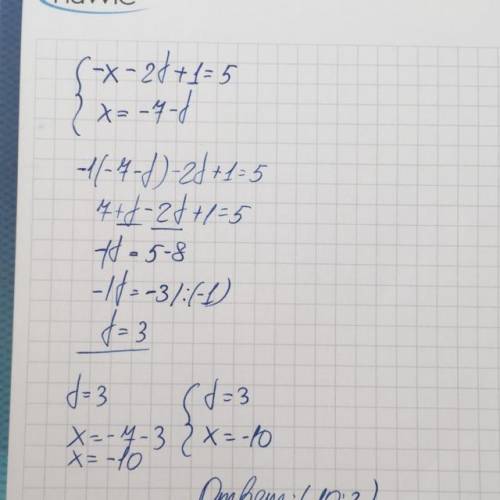 {-x - 2y + 1 = 5
{x = -7 - y
-1(-7 - y) - 2y + 1 = 5
7 + y - 2y + 1 = 5
-1y = 5 - 8
-1y = -3 /:(-1)
y = 3
y = 3
x = -7 - 3
x = -10
{y = 3
{x = -10
Ответ: (-10; 3)